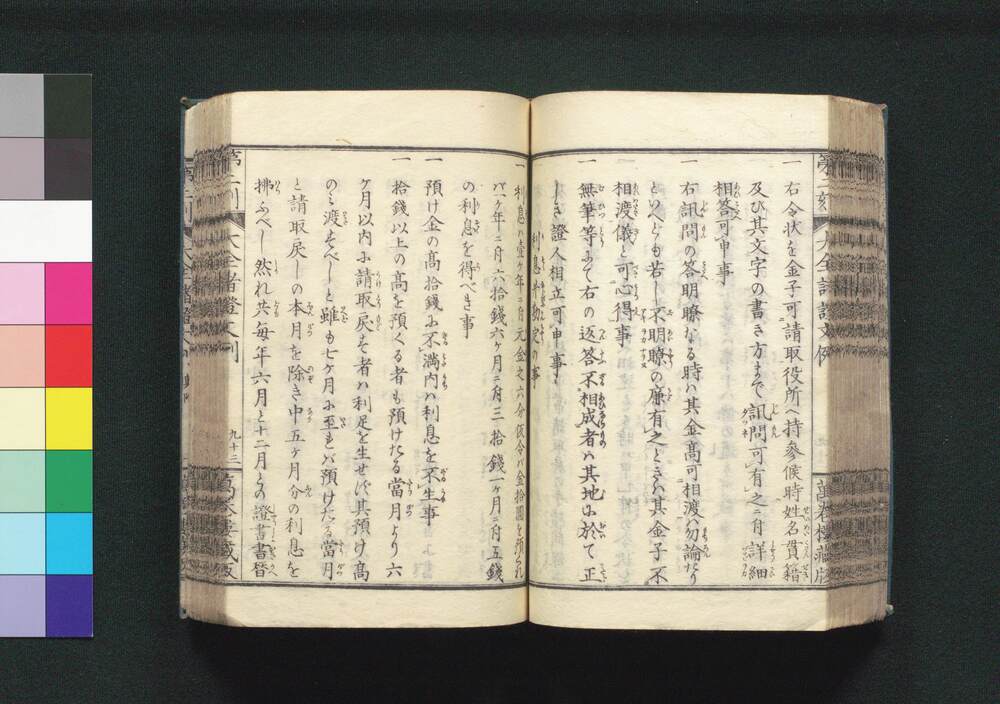 一 右令状を金子可請取役所へ持参候時姓名貫籍
及び其文字の書き方まで訊問可有之ニ付詳細
相答可申事
一 右訊問の答明瞭なる時ハ其金髙可相渡ハ勿論なり
といへども若し不明瞭の廉有之ときハ其金子不
相渡儀と可心得事
一 無筆等ふて右の返答不相成者ハ其地ふ於て正
しき證人相立可申事
利息并勘定の事
一 利息ハ壹ヶ年ニ付元金之六分仮令バ金拾圓を預られ
バ一ヶ年ニ付六拾錢六ヶ月ニ付三拾錢一ヶ月ニ付五錢
の利息を得べき事
一 預け金の髙拾錢ふ不満内ハ利息を不生事
一 拾錢以上の髙を預くる者も預けたる當月より六
ヶ月以内ふ請取戻す者ハ利足を生せず其預け髙
のミ渡すべしと雖も七ヶ月ふ至もバ預けたる當月
と請取戻しの本月を除き中五ヶ月分の利息を
拂ふべし然れ共毎年六月と十二月との證書書替
九十三